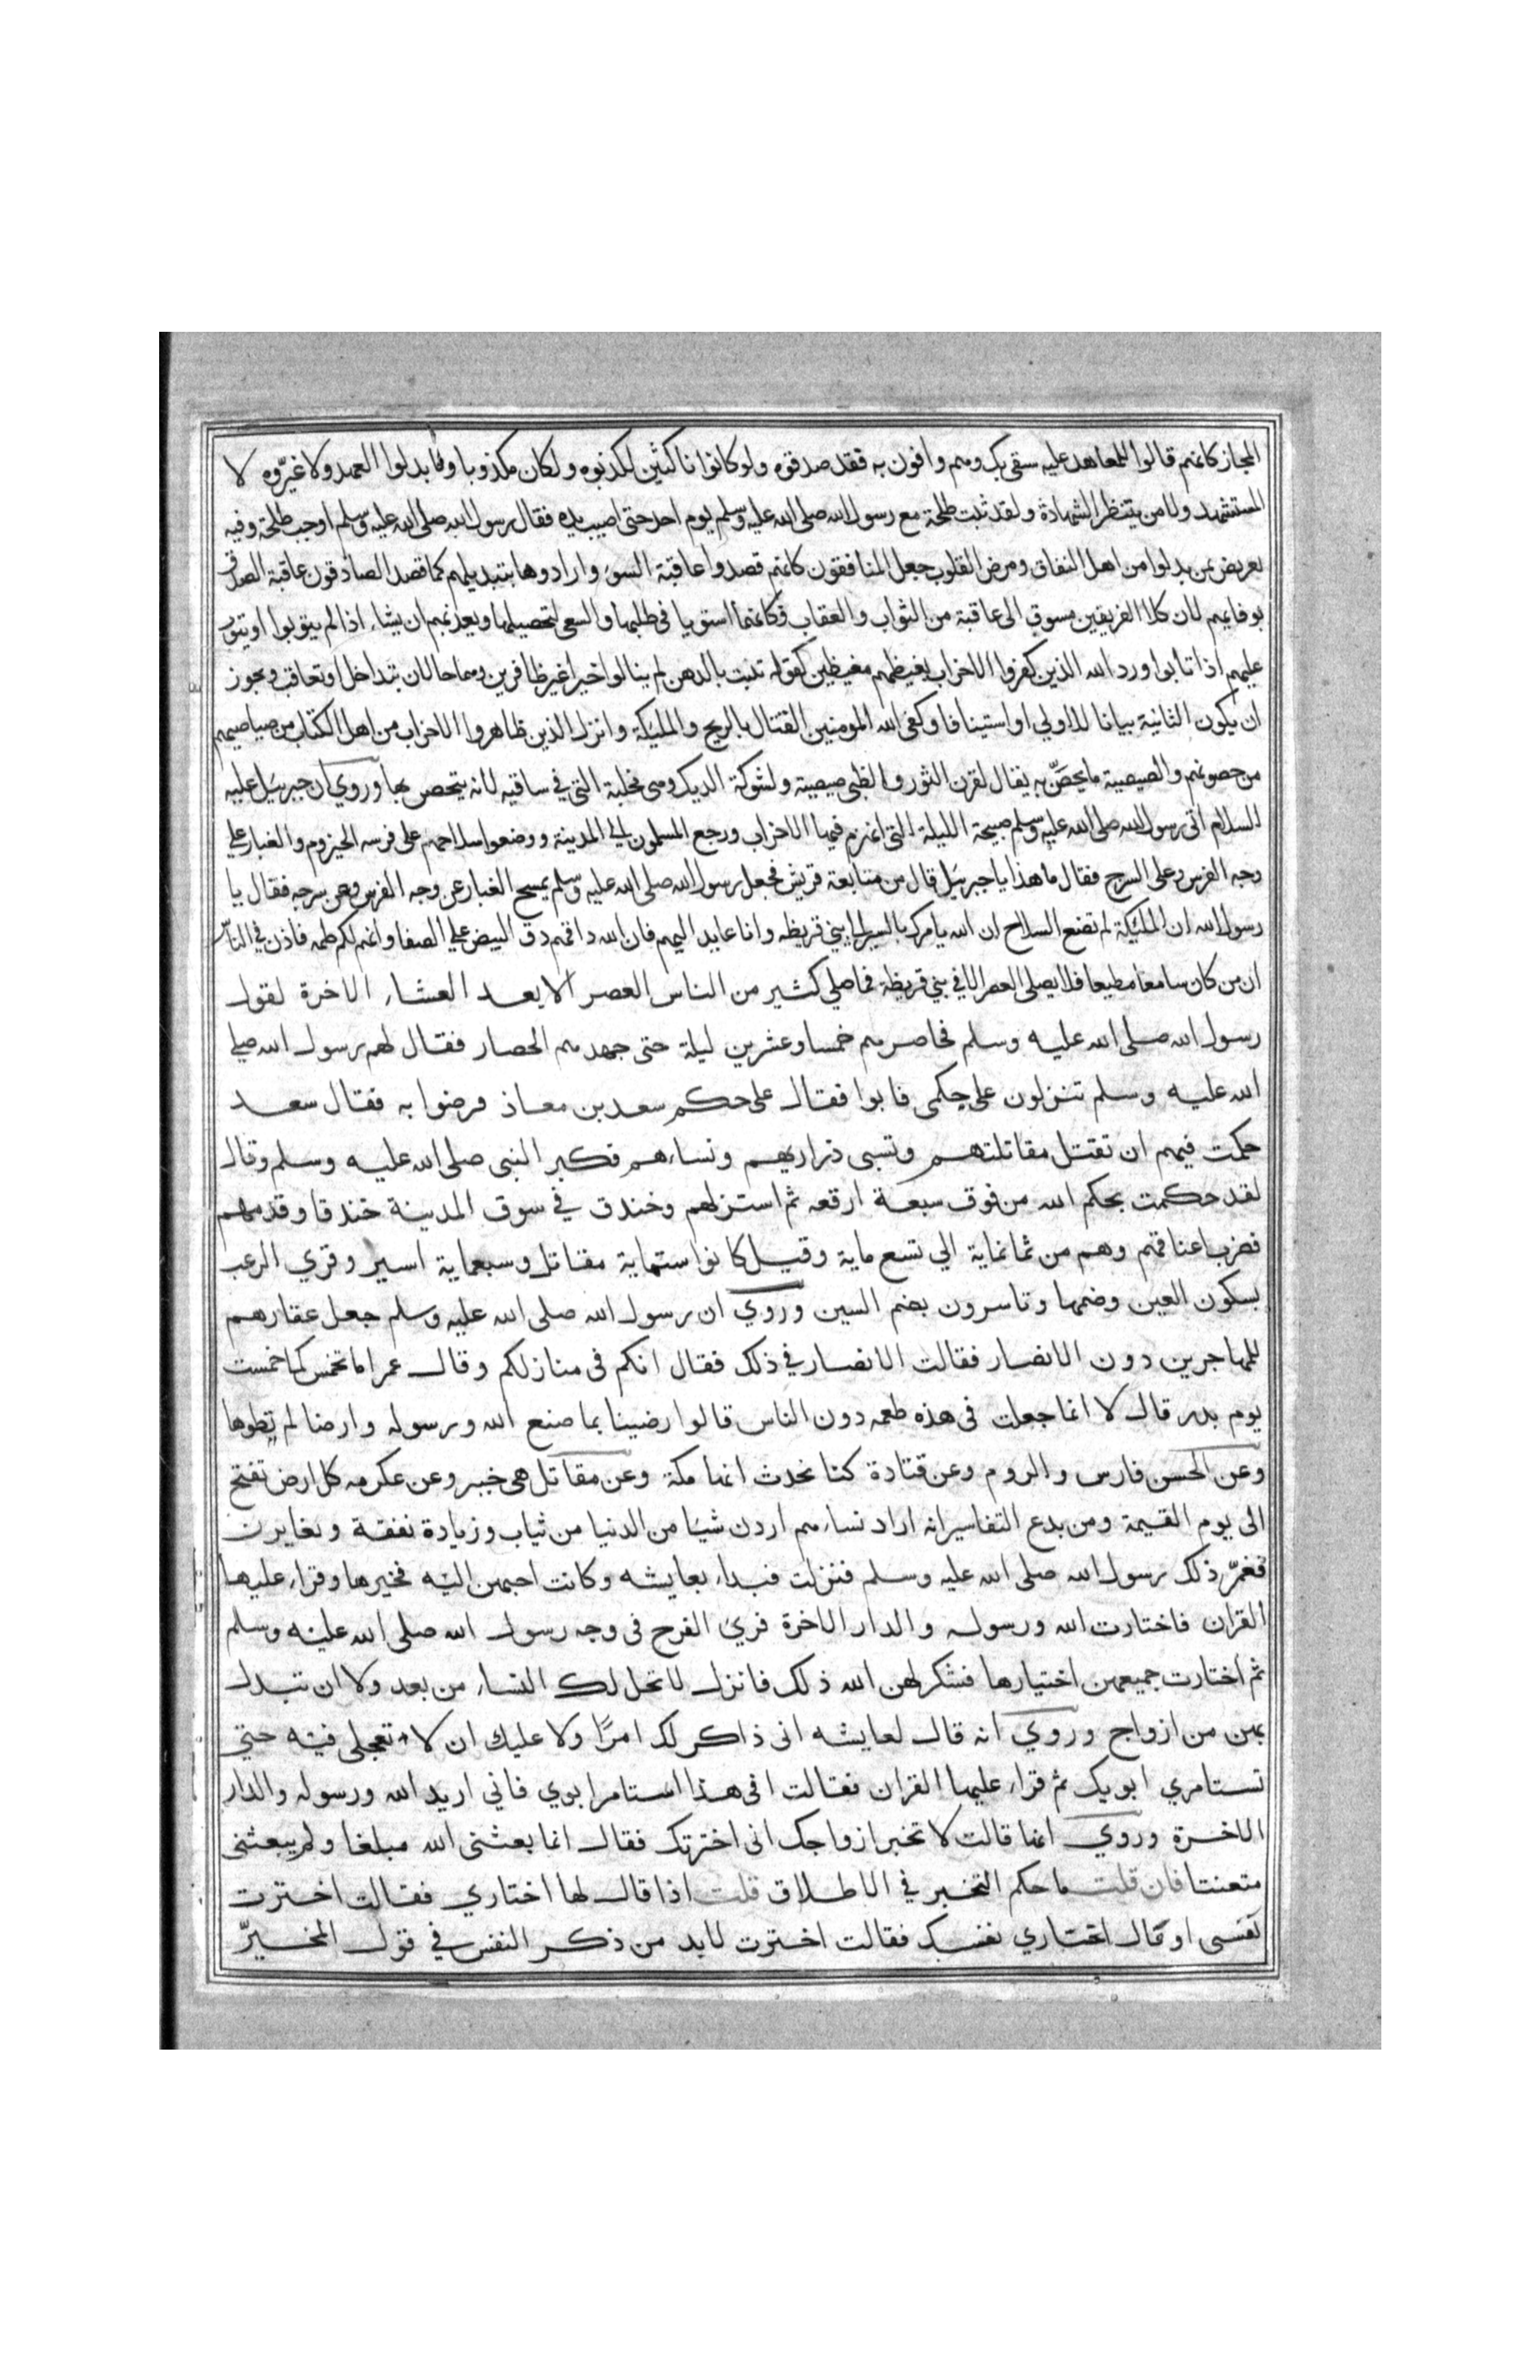 المجاز كانهم قالوا للمعاهد عليه سنفى بك وهم وافون به فقد صدقوه ولو كانوا ناكثين لكذبوه ولكان مكذوبا وما بدلوا العهد ولا غيّروه لا
المستشهد ولا من ينتظر الشهادة ولقد ثبت طلحة مع رسول الله صلى الله عليه وسلم يوم احد حتى اصيب يده فقال رسول الله صلى الله عليه وسلم اوجب طلحة وفيه
تعريض بمن بدلوا من اهل النفاق ومرض القلوب جعل المنافقون كانهم قصدوا عاقبة السوء وارادوها بتبديلهم كما قصد الصادقون عاقبة الصدق
بوفايهم لان كلا الفريقين مسوق الى عاقبة من الثواب والعقاب فكانهما استويا في طلبها والسعى لتحصيلها ويعذبهم ان يشاء اذا لم يتوبوا او يتوب
عليهم اذا تابوا ورد الله الذين كفروا الاحزاب بغيظهم مغيظين كقوله تنبت بالدهن لم ينالوا خيرا غير ظافرين وهما حالان بتداخل او تعاقب ويجوز
ان يكون الثانية بيانا للاولي او استينافا وكفى الله المومنين القتال بالريح والمليكة وانزل الذين ظاهروا الاحزاب من اهل الكتاب من صياصيهم
من حصونهم والصيصية ما يحصّن به يقال لقرن الثور والظبى صيصية ولشوكة الديك وهى مخلبة التى في ساقيه لانه يتحصن بها وروي ان جبرييل عليه
السلام اتى رسول الله صلى الله عليه وسلم صبيحة الليلة التى انهزم فيها الاحزاب ورجع المسلمون الي المدينة ووضعوا سلاحهم على فرسه الحيزوم والغبار علي
وجه الفرس وعلى السرج فقال ما هذا يا جبرييل قال من متابعة قريش فجعل رسول الله صلى الله عليه وسلم يمسح الغبار عن وجه الفرس وعن سرجه فقال يا
رسول الله ان المليكة لم تضع السلاح ان الله يامرك بالسير الى بني قريظه وانا عايد اليهم فان الله داقهم دق البيض علي الصفا وانهم لكم طعمه فاذن في الناس
ان من كان سامعا مطيعا فلا يصلى العصر الا في بني قريظة فما صلي كثير من الناس العصر الا بعد العشاء الاخرة لقول
رسول الله صلى الله عليه وسلم فحاصرهم خمسا وعشرين ليلة حتى جهدهم الحصار فقال لهم رسول الله صلي
الله عليه وسلم تنزلون على حكمى فابوا فقال على حكم سعد بن معاذ فرضوا به فقال سعد
حكمت فيهم ان تقتل مقاتلتهم وتسبى ذراريهم ونساءهم فكبر النبى صلى الله عليه وسلم وقال
لقد حكمت بحكم الله من فوق سبعة ارقعه ثم استنزلهم وخندق في سوق المدينة خندقا وقدمهم
فضرب اعناقهم وهم من ثمانماية الي تسع ماية وقيل كانوا ستماية مقاتل وسبعماية اسير وقري الرعب
بسكون العين وضمها وتاسرون بضم السين وروي ان رسول الله صلى الله عليه وسلم جعل عقارهم
للمهاجرين دون الانصار فقالت الانصار في ذلك فقال انكم فى منازلكم وقال عمر اما تخمس كما خمست
يوم بدر قال لا انما جعلت فى هذه طعمه دون الناس قالوا رضينا بما صنع الله ورسوله وارضا لم تطوها
وعن الحسن فارس والروم وعن قتادة كنا نحدث انها مكة وعن مقاتل هى خيبر وعن عكرمه كل ارض تفتح
الى يوم القيمة ومن بدع التفاسير انه اراد نساءهم اردن شيا من الدنيا من ثياب وزيادة نفقة وتغايرن
فغمّ ذلك رسول الله صلى الله عليه وسلم فنزلت فبداء بعايشه وكانت احبهن اليه فخيرها وقراء عليها
القران فاختارت الله ورسوله والدار الاخرة فريء الفرح فى وجه رسول الله صلى الله عليه وسلم
ثم اختارت جميعهن اختيارها فشكر لهن الله ذلك فانزل لا تحل لك النساء من بعد ولا ان تبدل
بهن من ازواج وروي انه قال لعايشه انى ذاكر لك امرًا ولا عليك ان لا تعجلى فيه حتى
تستامري ابويك ثم قراء عليها القران فقالت افى هذا استامر ابوي فاني اريد الله ورسوله والدار
الاخرة وروي انها قالت لا تخبر ازواجك انى اخترتك فقال انما بعثنى الله مبلغا ولم يبعثنى
متعنتا فان قلت ما حكم التخيير في الاطلاق قلت اذا قال لها اختاري فقالت اخترت
نفسى او قال اختاري نفسك فقالت اخترت لابد من ذكر النفس في قول المخيرّ